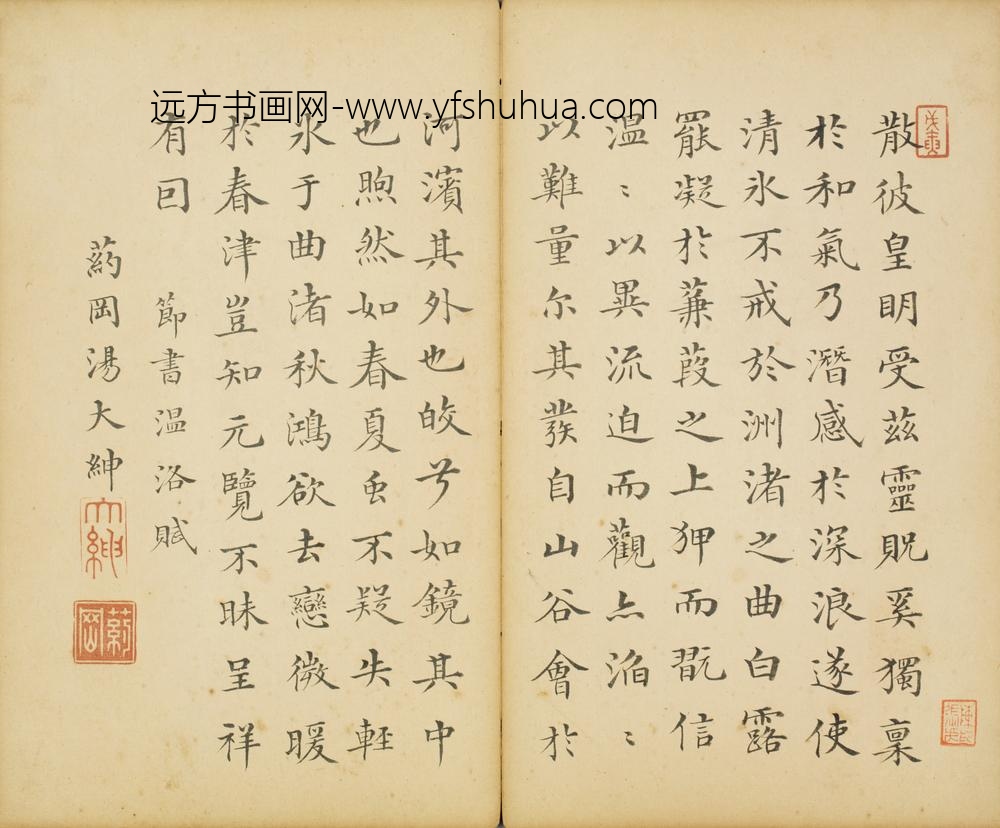 远方书画网-www.yfshuhua.com
散彼皇明受茲靈貺奚獨稟
於和氣乃潛感於深浪遂使
清氷不戒於洲渚之曲白露
罷凝於蒹葭之上狎而翫信
溫〻以異流迫而觀亦滔〻
以難量尔其發自山谷會於
河濱其外也皎兮如鏡其中
也煦然如春夏虫不疑失輕
氷于曲渚秋鴻欲去戀微暖
於春津豈知元覽不昧呈祥
有囙
節書温洛賦
藥岡湯大紳
大紳
藥岡